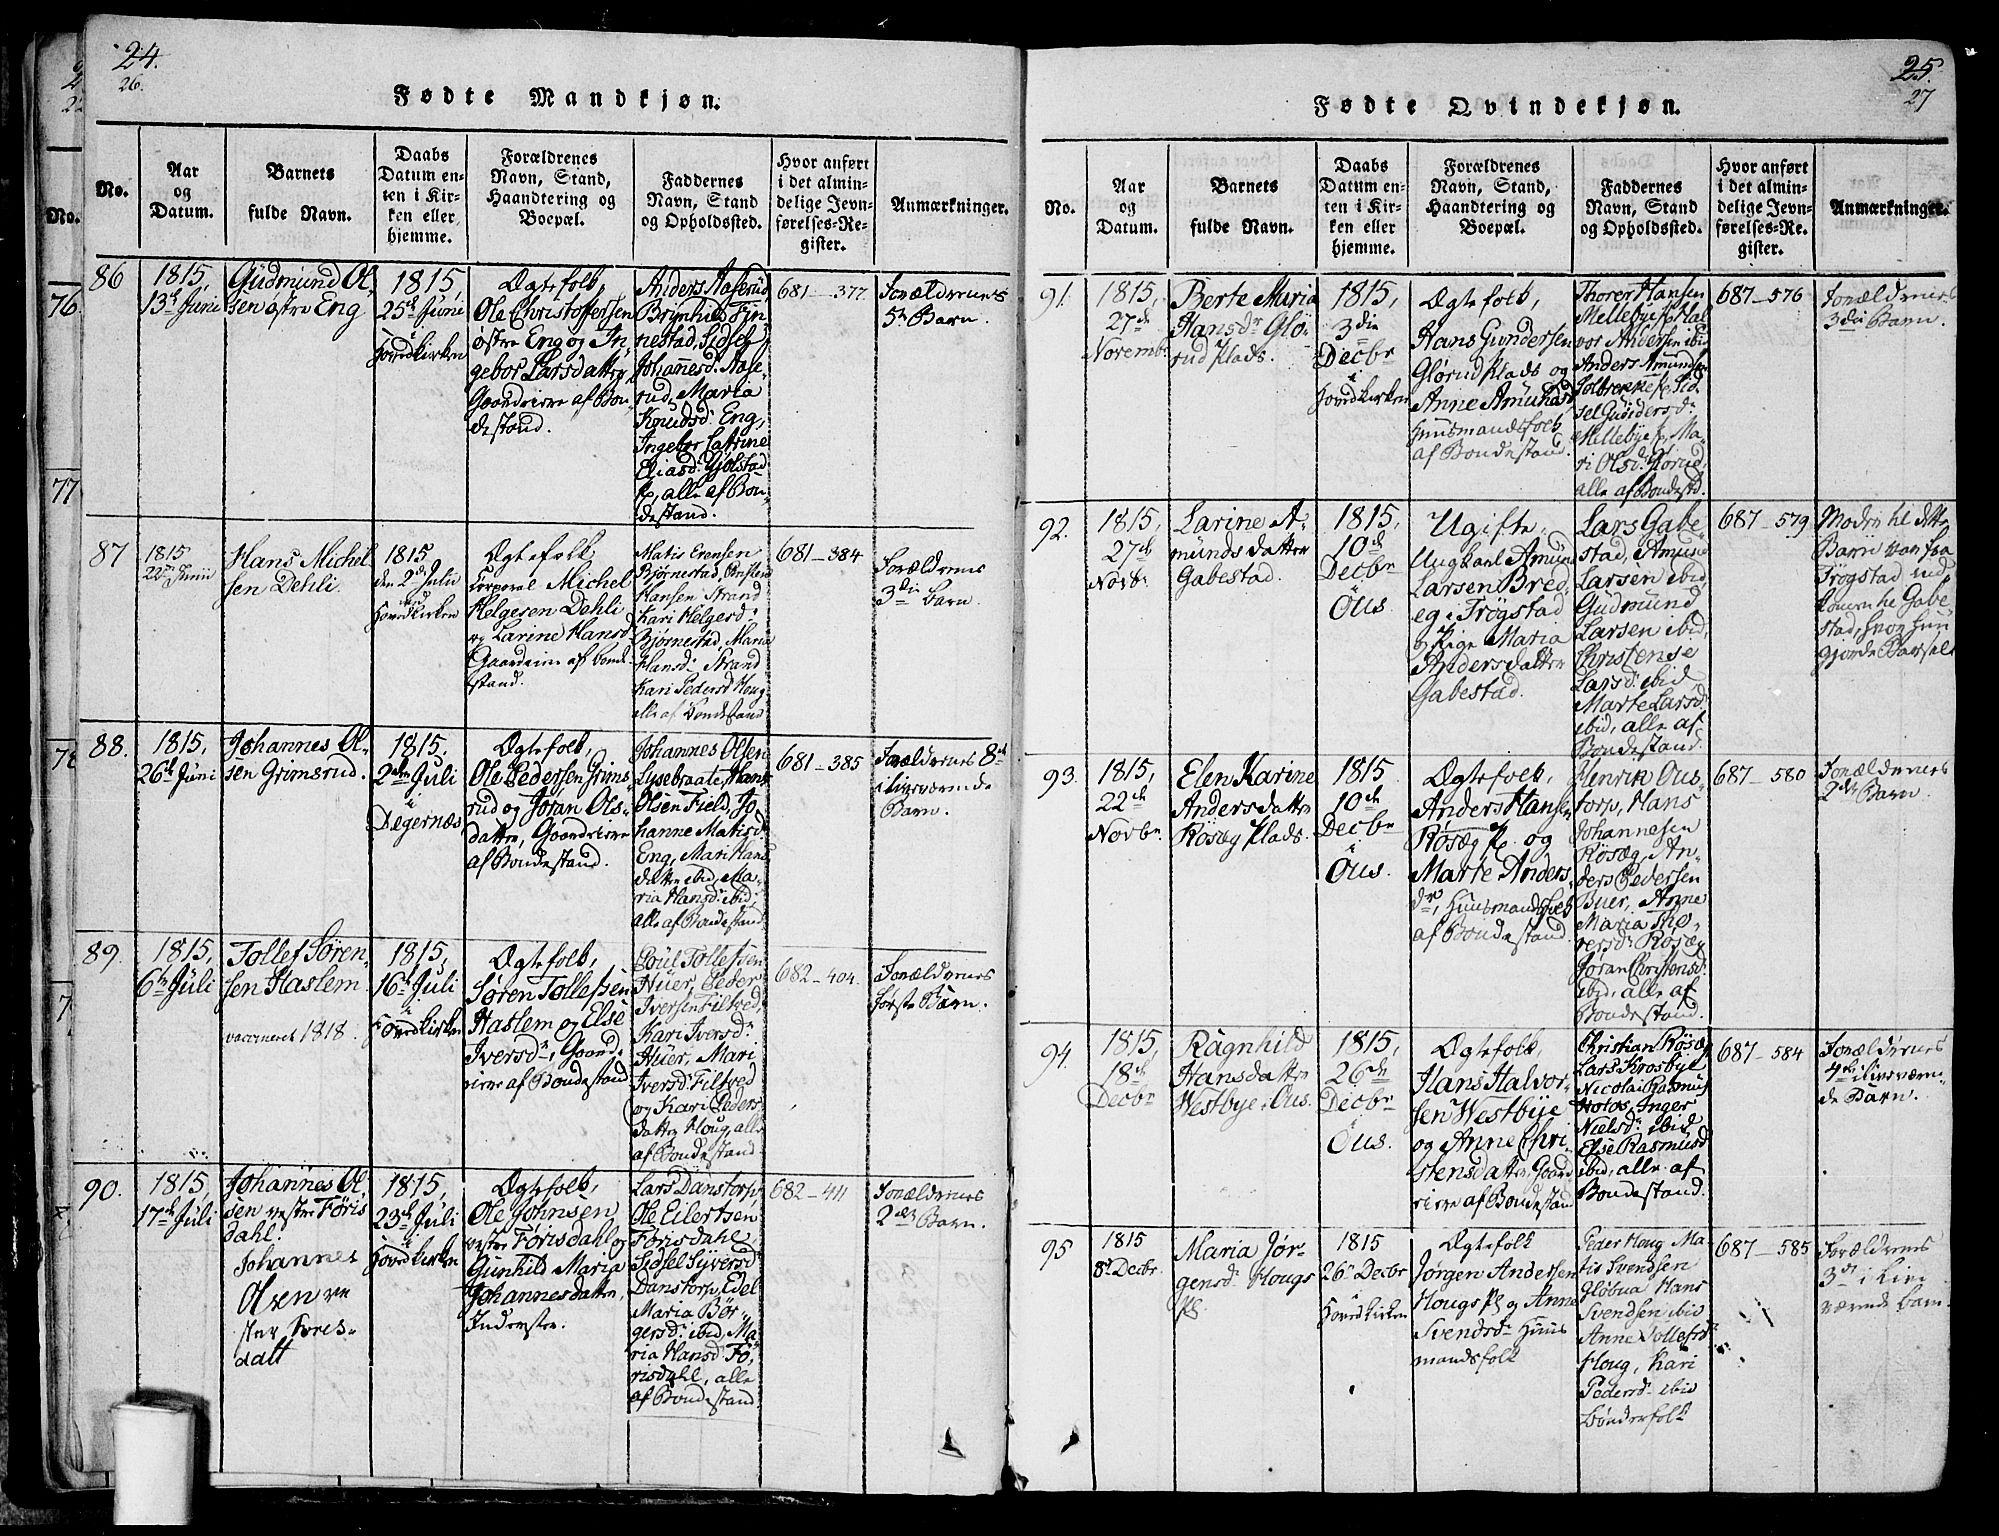 24.
26.
Fødte Mandkjøn.
No.
Aar
og
Datum.
Barnets
fulde Navn.
Daabs
Datum en-
ten i Kir-
ken eller
hjemme.
Forældrenes
Navn, Stand,
Haandtering og
Boepæl.
Faddernes
Navn, Stand
og Opholdssted.
Hvor anført
i det almin-
delige Jevn-
førelses-Re-
gister.
Anmærkninger.
86
1815,
13de Juni
Gudmund Ol-
sen østre Eng
1815,
25de Juni
i
Hovedkirken
Ægtefolk,
Ole Christoffersen
østre Eng og In-
gebor Larsdatter,
Gaardeiere af Bon-
destand.
Anders Aaserud
Brynhild Fin-
nestad, Sidsel
Johannesd: Aase-
rud, Maria
Knudsd: Eng,
Ingebor Catrine
Eliasd: Gjølstad
Pl, alle af Bon-
destand.
681 – 377
Forældrenes
5te Barn.
87
1815
22de Junii
Hans Michel-
sen Dehli.
1815
den 2de Julii
ved
Hovedkirken
Ægtefolk
Corporal Michel
Helgesen Dehli
og Larine Hansd
Gaardeiere af Bonde-
stand.
Matis Erensen
Bjørnestad, Christen
Hansen Strand
Kari Helgesd:
Bjørnestad, Maria
Hansd: Strand
Kari Pedersd Houg
alle af Bondestand
681 – 384
Forældrenes
3die Barn.
88.
1815,
26de Juni
Johannes Ol-
sen Grimsrud.
1815.
2den Juli
i
Degernæs
Ægtefolk,
Ole Pedersen Grims-
rud og Jøran Ols-
datter, Gaardeiere
af Bondestand.
Johannes Olsen
Lysebraate, Hans
Olsen Field, Jo-
hanne Matisd:
Eng, Mari Hans
datter ibid, Ma-
ria Hansd: ibid,
alle af Bondestand
681 – 385
Forældrenes 8de
i liveværende
Barn.
89.
1815,
6te Juli
Tollef Søren-
sen Haslem.
vaccineret 1818.
1815,
16de Juli
i
Hovedkirken
Ægtefolk,
Søren Tollefsen
Haslem og Else
Iversdr, Gaard-
eiere af Bondestand
Poul Tollefsen
Huer, Peder
Iversen Filtved,
Kari Iversdr
Huer, Mari
Iversd: Filtved
og Kari Peders-
datter Houg, alle
af Bondestand.
682 – 404.
Forældrenes
første Barn.
90.
1815,
17de Juli
Johannes Ol-
sen vestre Føris-
dahl.
Johannes
Olsen ve
ster Føres-
dall
1815,
23de Juli
i
Hovedkirken
Ægtefolk,
Ole Johnsen
vestre Førisdahl og
Gunhild Maria
Johannesdatter,
Inderster.
Lars Danstorp,
Ole Eilertsen
Førisdahl,
Sidsel Syversd:
Danstorp, Edel
Maria Bør-
gersd: ibid, Ma-
ria Hansd: Fø-
risdahl, alle
af Bondestand.
682 – 411
Forældrenes
2det Barn.
25.
27
Fødte Qvindekjøn.
No.
Aar
og
Datum.
Barnets
fulde Navn.
Daabs
Datum en-
ten i Kir-
ken eller
hjemme.
Forældrenes
Navn, Stand,
Haandtering og
Boepæl.
Faddernes
Navn, Stand
og Opholdssted.
Hvor anført
i det almin-
delige Jevn-
førelses-Re-
gister.
Anmærkninger.
91.
1815,
27de
Novembr
Berte Maria
Hansdr Glø-
rud Plads.
1815,
3die
Decbr
i
Hovedkirken
Ægtefolk,
Hans Gundersen
Glørud Plads og
Anne Amundsd
Huusmandsfolk
af Bondestand.
Thorer Hansen
Mellebye, Hal-
vor Andersen ibid
Anders Amundsen
Sid-
sel
Mellebye, Ma-
ri Olsd: Glørud,
alle af Bondestd.
687 – 576
Forældrenes
3die Barn.
92.
1815,
27de
Novbr
Larine A-
mundsdatter
Gabestad.
1815,
10de
Decbr
i
Øus.
Ugifte,
Ungkarl Amund
Larsen Bred-
eg i Trøgstad
og Pige Maria
Andersdatter
Gabestad.
Lars Gabe-
stad, Amund
Larsen ibid,
Gudmund
Larsen ibid,
Christense
Larsd: ibid,
Marte Larsd:
ibid, alle af
Bondestand.
687 – 579
Moderen til dette
Barn var fra
Trøgstad ind
kommen til Gabe-
stad, hvor hun
gjorde Barsel.
93.
1815,
22de
Novbr.
Elen Karine
Andersdatter
Røsæg Plads.
1815
10de
Decbr
i
Øus.
Ægtefolk,
Anders Hansen
Røsæg Pl. og
Marte Anders-
dr, Huusmandsfolk
af Bondestand.
Henrik Ous-
torp, Hans
Johannesen
Røsæg, An-
ders Pedersen
Buer, Anne
Maria Tho-
rersd: Røsæg
Jøran Christensd:
ibid, alle af
Bondestand.
687 – 580
Forældrenes
2det Barn.
94.
1815,
18de
Decbr
Ragnhild
Hansdatter
Westbye i Øus.
1815,
26de
Decbr
i
Øus.
Ægtefolk,
Hans Halvor-
sen Westbye
og Anne Chri-
stensdatter, Gaard-
eiere af Bondestand
Christian Røsæg
Lars Krosbye
Nicolai Rasmus
Holos, Inger
Nielsd: ibid
Else Rasmusd
ibid, alle af
Bondestand.
687 – 584
Forældrenes
4de i liveværen-
de Barn.
95
1815
8de Decbr
Maria Jør-
gensdr Hougs
Pl.
1815
26de Decbr
i
Hovedkirken
Ægtefolk
Jørgen Andersen
Hougs Pl og Anne
Svendsdr Huus
mandsfolk
Peder Houg Ma-
tis Svendsen
Globua Hans
Svendsen ibid
Anne Tollefsdr
Houg, Kari
Pedersd ibid
Bønderfolk
687 – 585
Forældrenes
3de i live
værende barn.